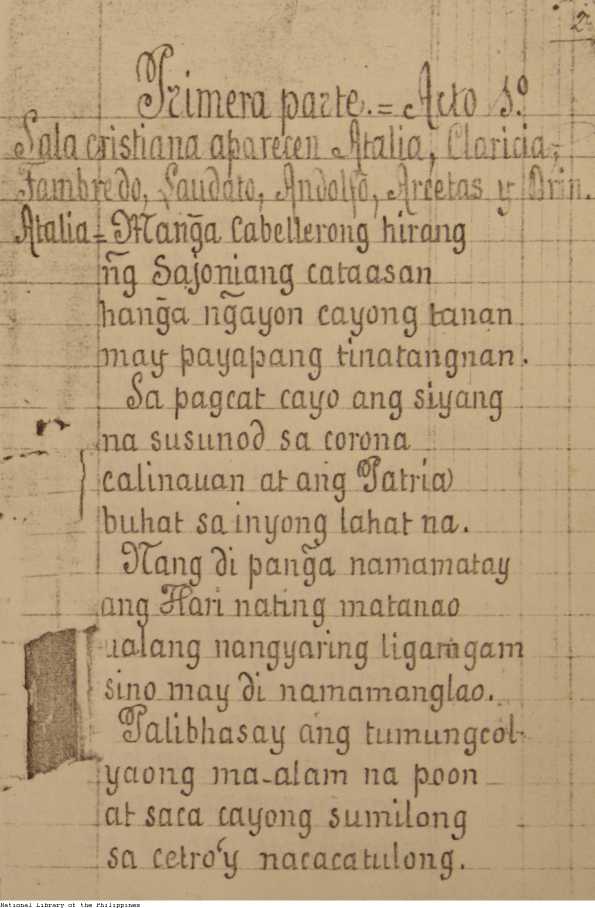 2
Primera parte.= Acto 1º
Sala cristiana aparecen Atalia, Claricia,
Fambredo, Laudato, Andolfo, Arcetas y Brin.
Atalia = Mang̃a Cabellerong hirang
n͠g Sajoniang cataasan
hang̃a ng̃ayon cayong tanan
may payapang tinatangnan.
Sa pagcat cayo ang siyang
na susunod sa corona
calinauan at ang Patria
buhat sa inyong lahat na.
Nang di pang̃a namamatay
ang Hari nating matanao
ualang nangyaring ligamgam
sino may di namamanglao.
Palibhasay ang tumungcol
yaong ma-alam na poon
at saca cayong sumilong
sa cetro'y nacacatulong.
National Library of the Philippines